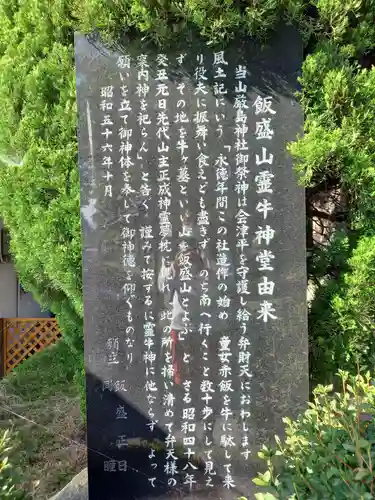 飯盛山霊牛神堂由来
当山厳島神社御祭神は会津平を守護し給う弁財天におわします
風土記にいう「永徳年間この社造作の始め 童女赤飯を牛に駄して来
り役夫に振舞い食えども盡きず のち南へ行くこと数十歩にして見え
ず その地を牛ヶ墓といい山を飯盛山とよぶ」と さる昭和四十八年
癸丑元日先代山主正成神霊観枕に 此の所を掃い清めて弁天様の
案内神を祀らん」と告ぐ 謹みて按ずるに霊牛神に他ならず よって
願いを立て御神体を奉して御神徳を仰ぐものなり
昭和五十六年十月
願主 飯盛正日
同 瞳